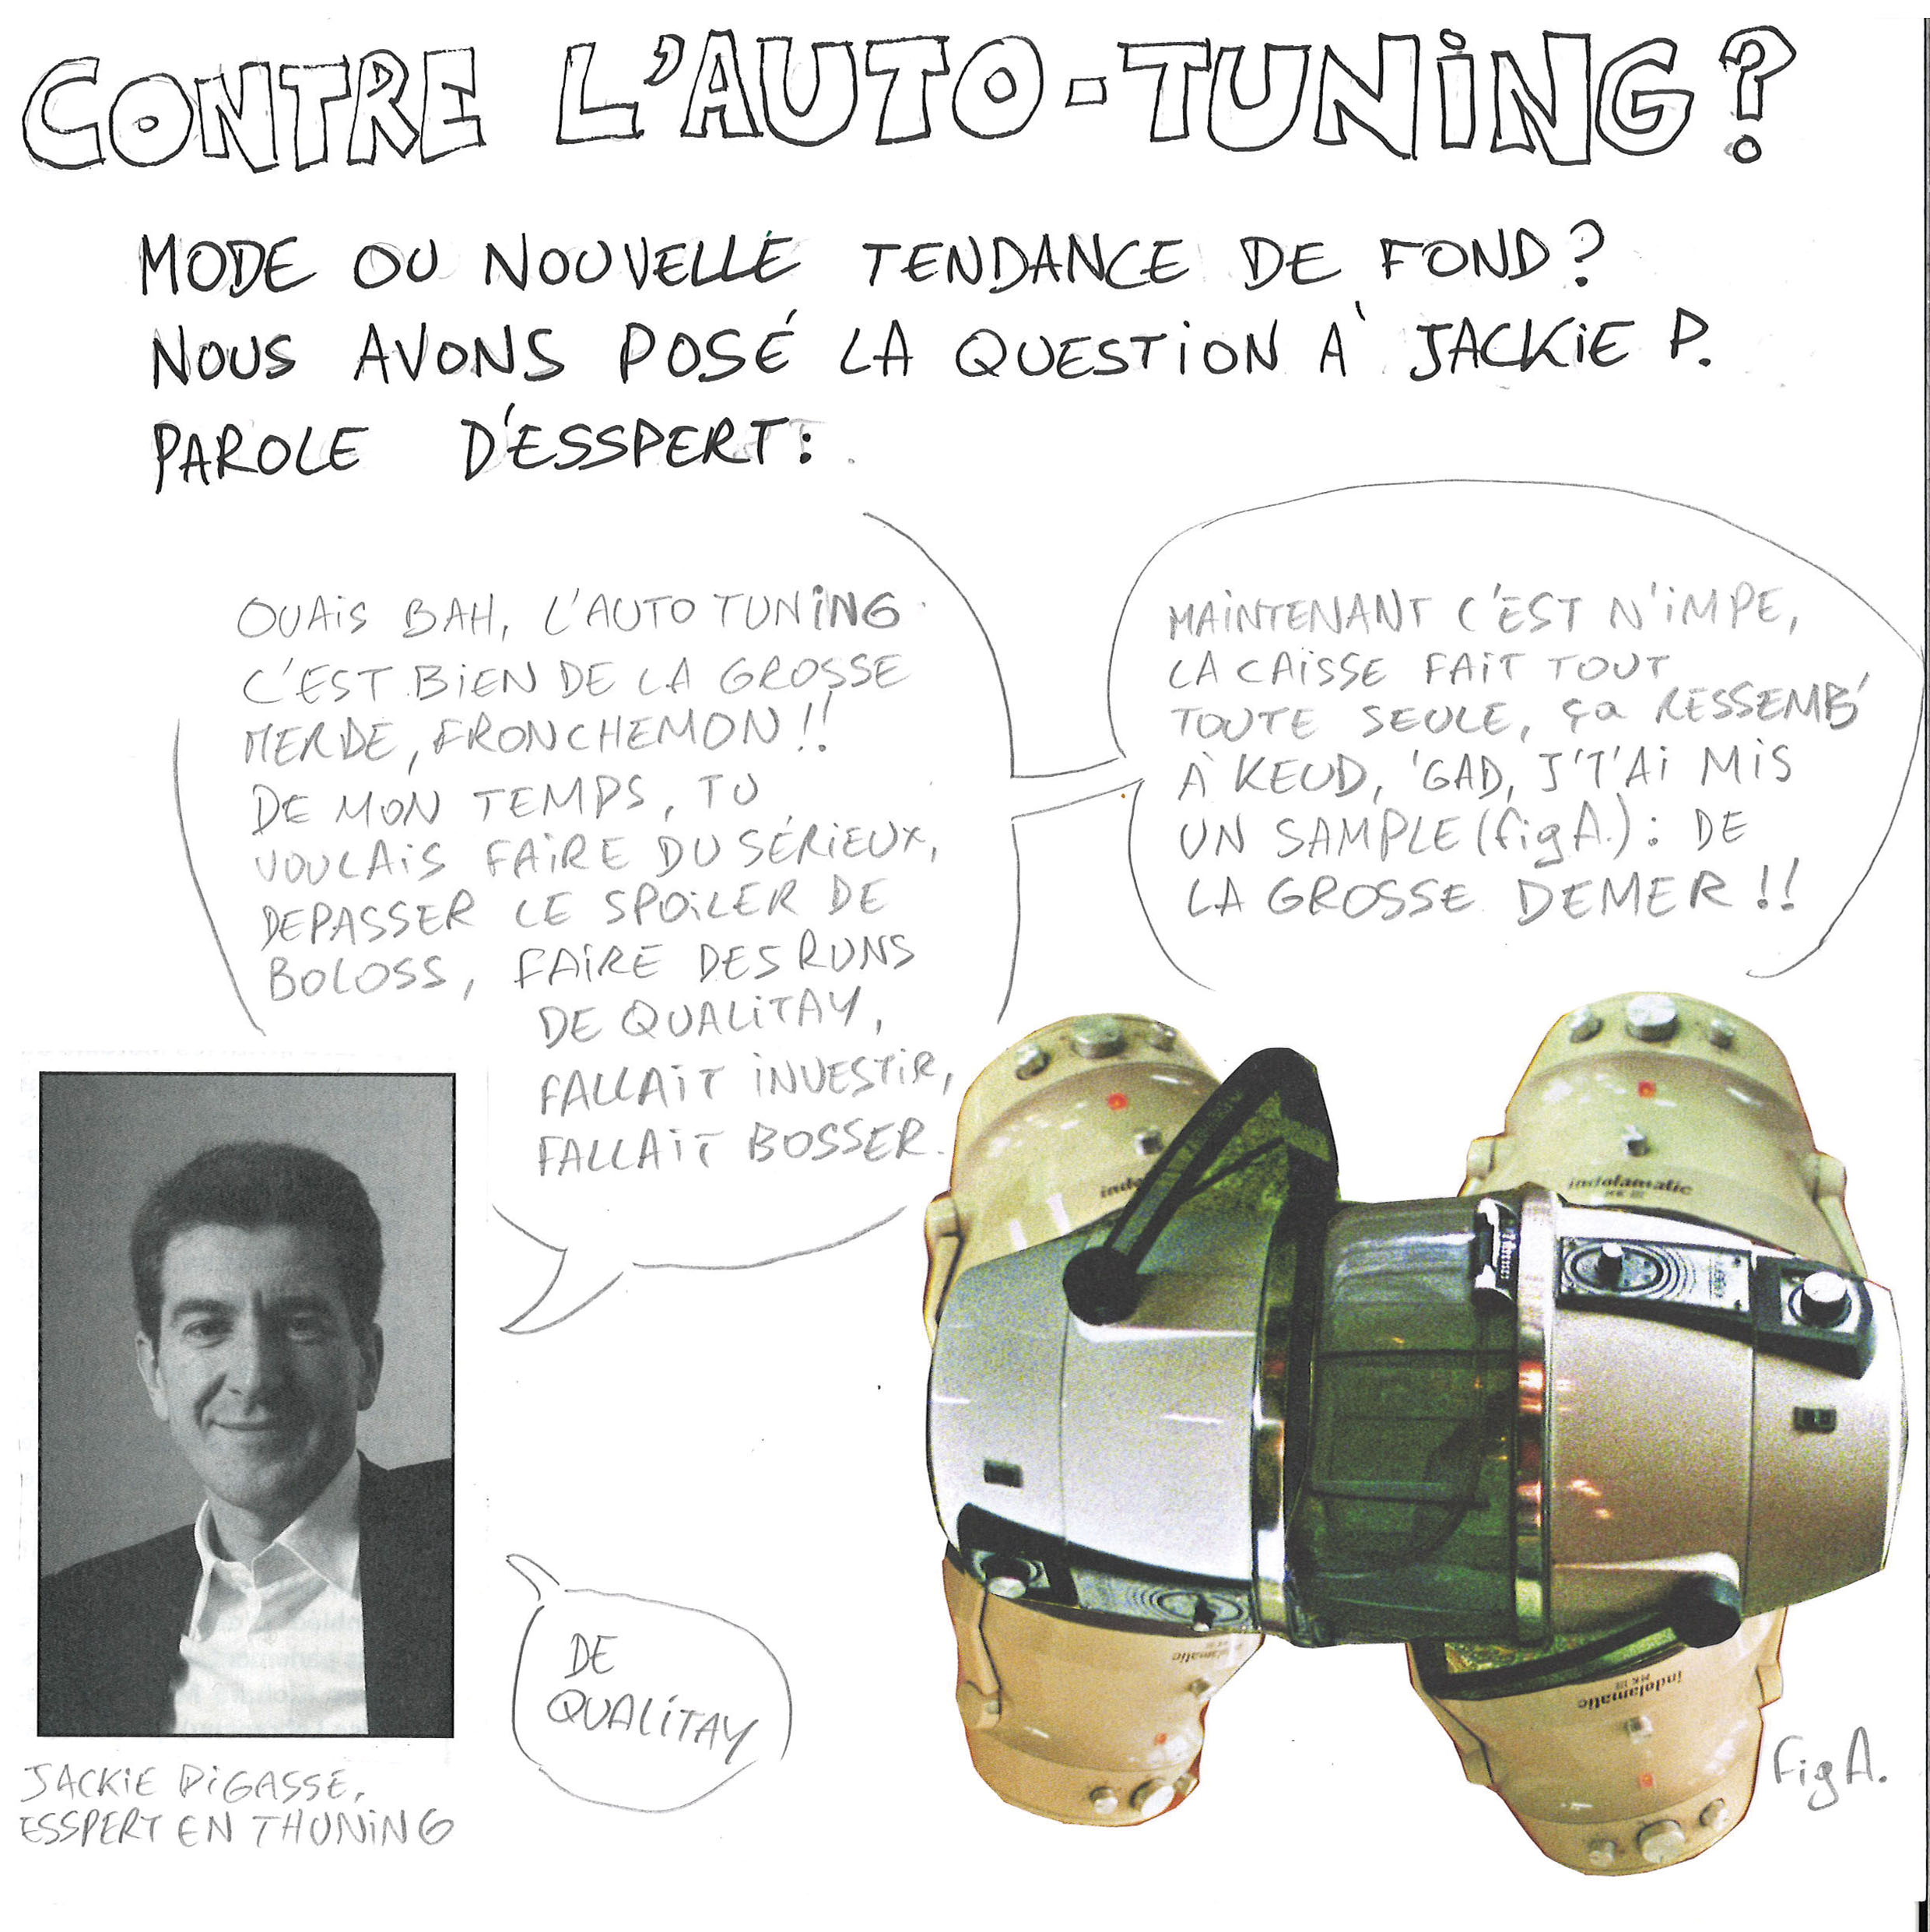 CONTRE L'AUTO-TUNING?
MODE OU NOUVELLE TENDANCE DE FOND?
NOUS AVONS POSÉ LA QUESTION À JACKIE P.
PAROLE D'ESSPERT:
OUAIS BAH, L'AUTO TUNING
C'EST BIEN DE LA GROSSE
MERDE, FRONCHEMON!!
DE MON TEMPS, TU
VOULAIS FAIRE DU SÉRIEUX,
DEPASSER LE SPOILER DE
BOLOSS, FAIRE DES RUNS
DE QUALITAY,
FALLAIT INVESTIR,
FALLAIT BOSSER.
MAINTENANT C'EST N'IMPE,
LA CAISSE FAIT TOUT
TOUTE SEULE, ça RESSEMB'
À KEUD, 'GAD, J'T'AI MIS
UN SAMPLE (figA.): DE
LA GROSSE DEMER!!
DE
QUALITAY
JACKIE PIGASSE,
ESSPERT EN THUNING
indolamatic
MK III
indolamatic
MK III
figA.